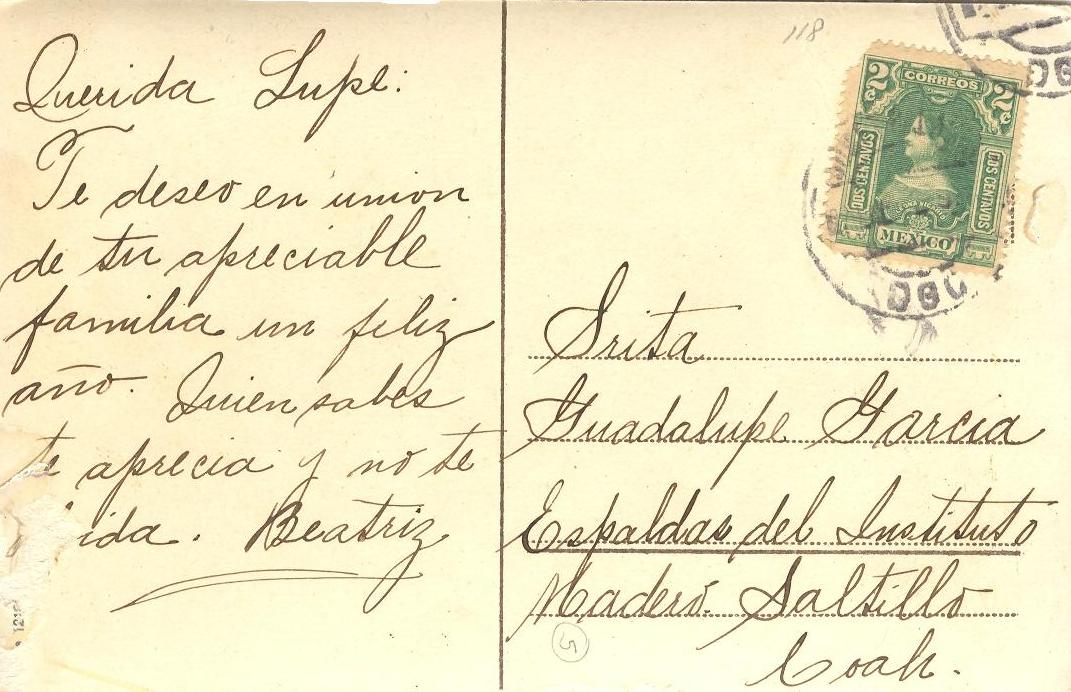 Querida Lupe:
Te deseo en union
de tu apreciable
familia un feliz
año. Quien sabes
te aprecia y no te
Beatriz
118
2¢ CORREOS 2¢
DOS CENTAVOS
DOS CENTAVOS
MEXICO
Srita
Guadalupe Garcia
Espaldas del Instituto
Madero. Saltillo
Coah.
5